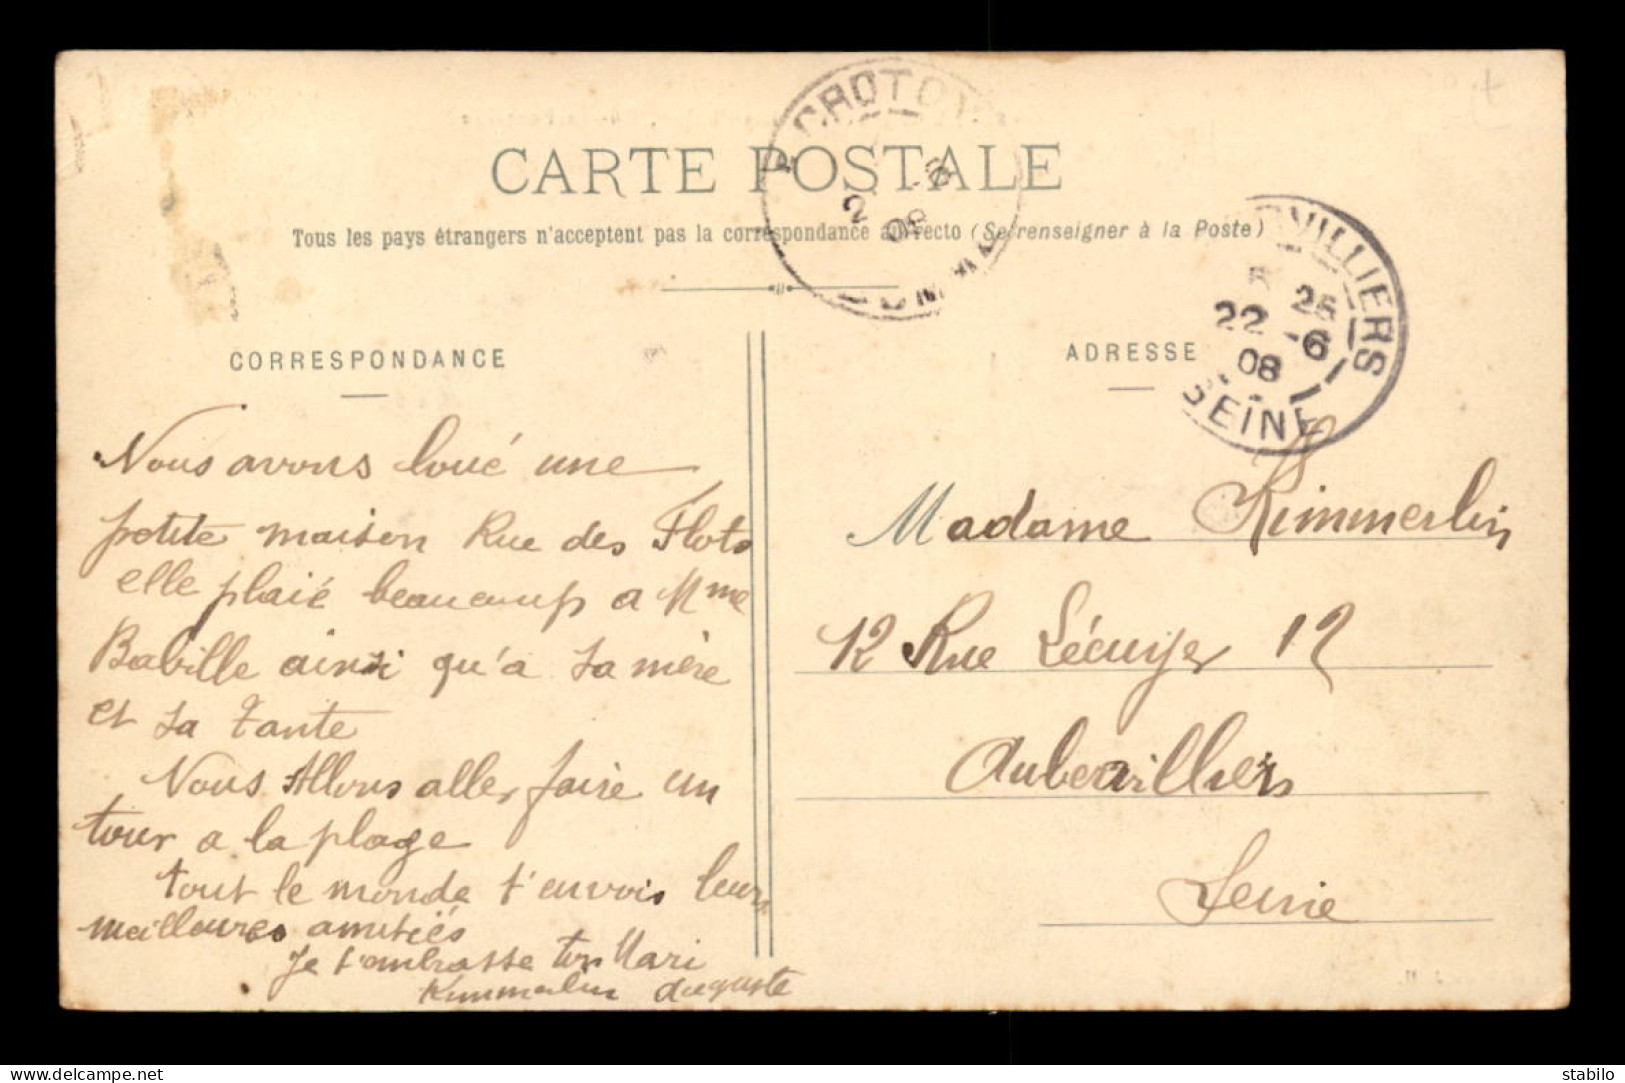 CARTE POSTALE
Tous les pays étrangers n'acceptent pas la correspondance au recto (Se renseigner à la Poste)
CROTOY
2 6
08
SOMME
VILLIERS
25
22 -6
08
SEINE
CORRESPONDANCE
ADRESSE
Nous avons loué une
petite maison Rue des Flots
elle plaié beaucoup a Mme
Babille ainsi qu'a sa mère
et sa tante
Nous Allons aller faire un
tour a la plage
tout le monde t'envois leurs
meilleures amitiés
Je t'embrasse ton Mari
Kimmerlin Auguste
Madame Kimmerlin
12 Rue Lécuyer 12
Aubervilliers
Seine
www.delcampe.net
stabilo